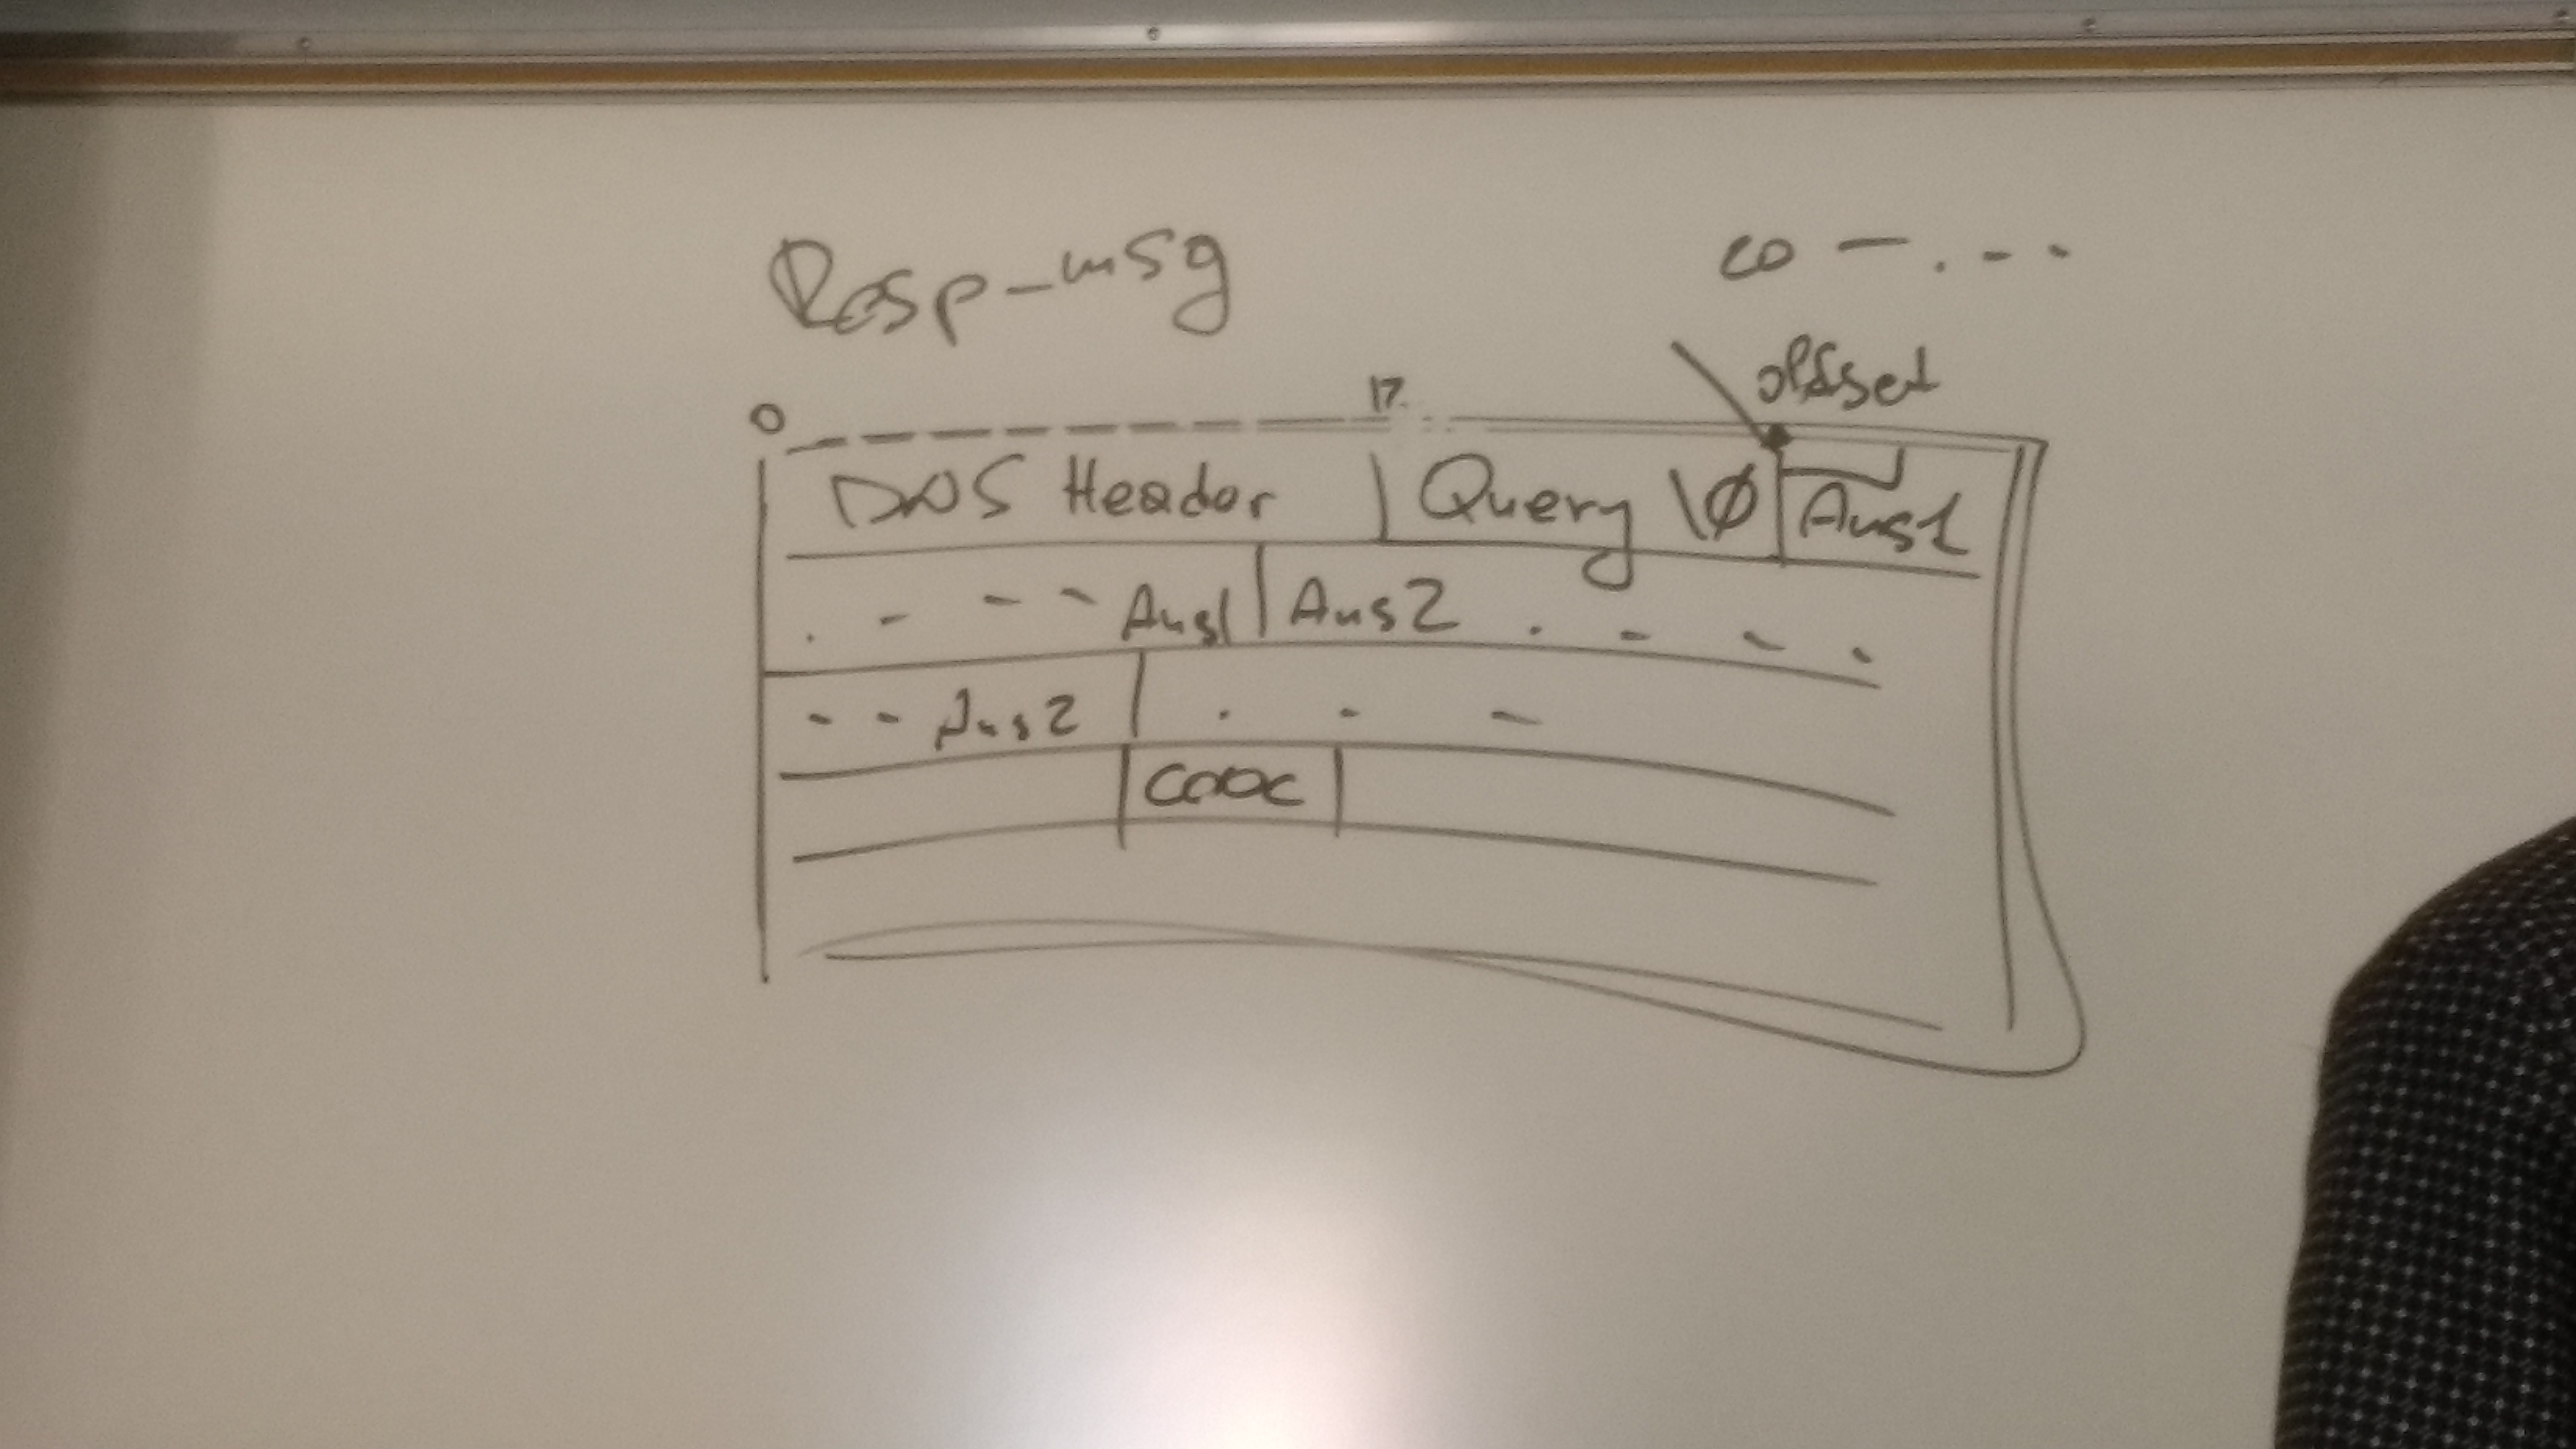 Resp-msg
co - . - - -
offset
0 12
DNS Header Query \0 Ans1
. - - - Ans1 Ans2 . - - .
- - Ans2 . - -
C00C